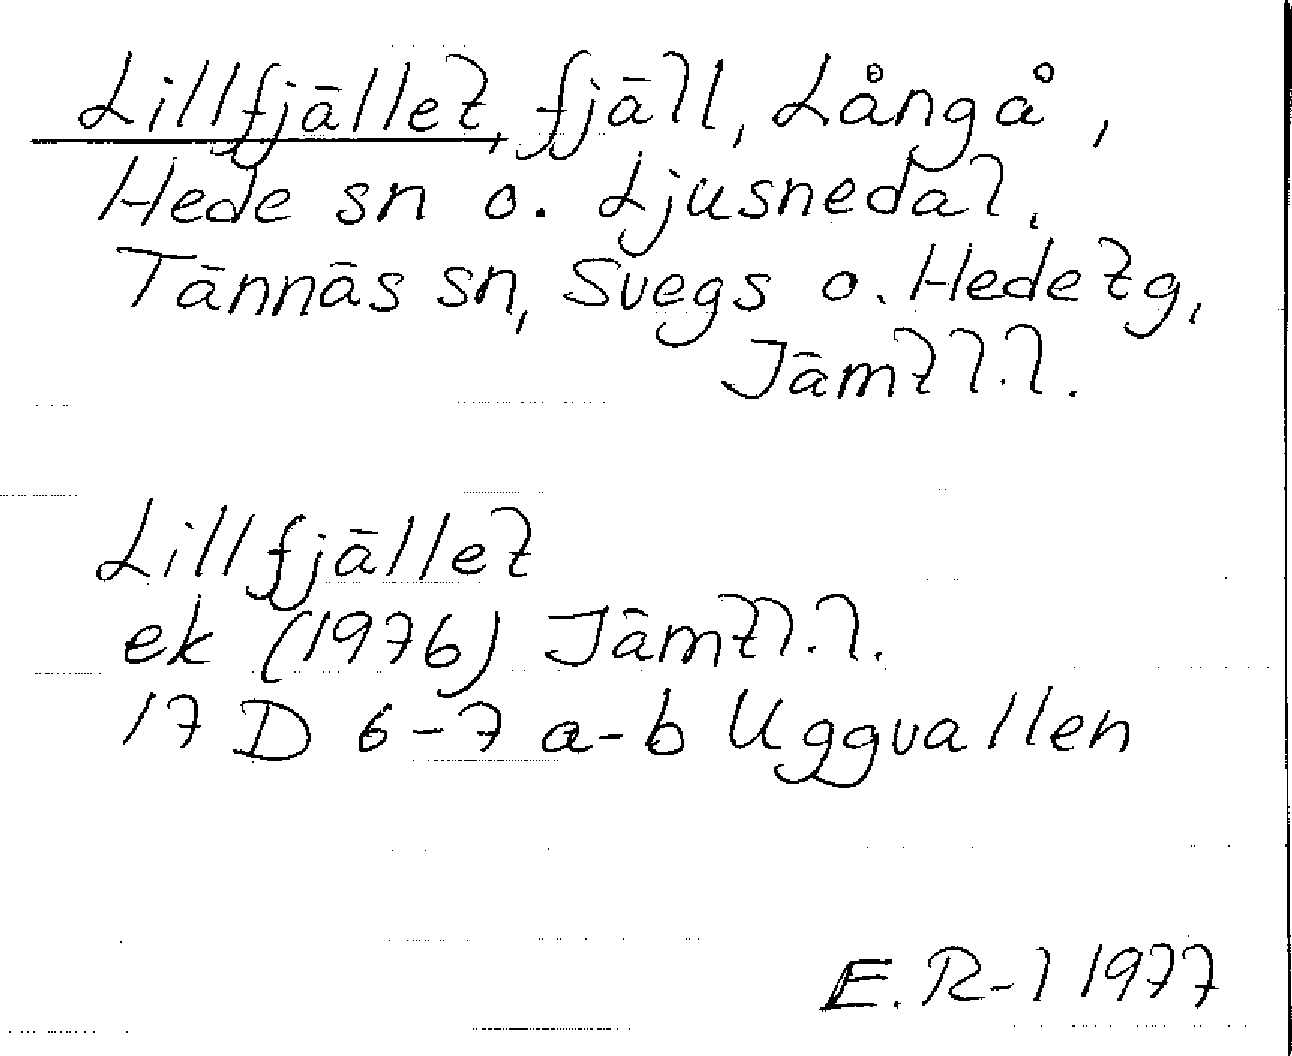 Lillfjället, fjäll, Långå,
Hede sn o. Ljusnedal,
Tännäs sn, Svegs o. Hede tg,
Jämtl.l.
Lillfjället
ek (1976) Jämtl.l.
17 D 6-7 a-b Uggvallen
E.R-l 1977